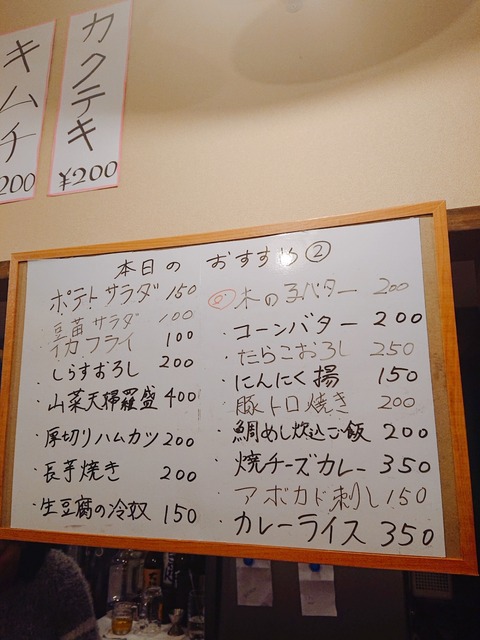 カクテキ
¥200
キムチ
200
本日の おすすめ②
ポテトサラダ 150
豆苗サラダ 100
イカフライ 100
しらすおろし 200
山菜天婦羅盛 400
厚切りハムカツ 200
長芋焼き 200
生豆腐の冷奴 150
木の子バター 200
コーンバター 200
たらこおろし 250
にんにく揚 150
豚トロ焼き 200
鯛めし炊込ご飯 200
焼チーズカレー 350
アボカド刺し 150
カレーライス 350